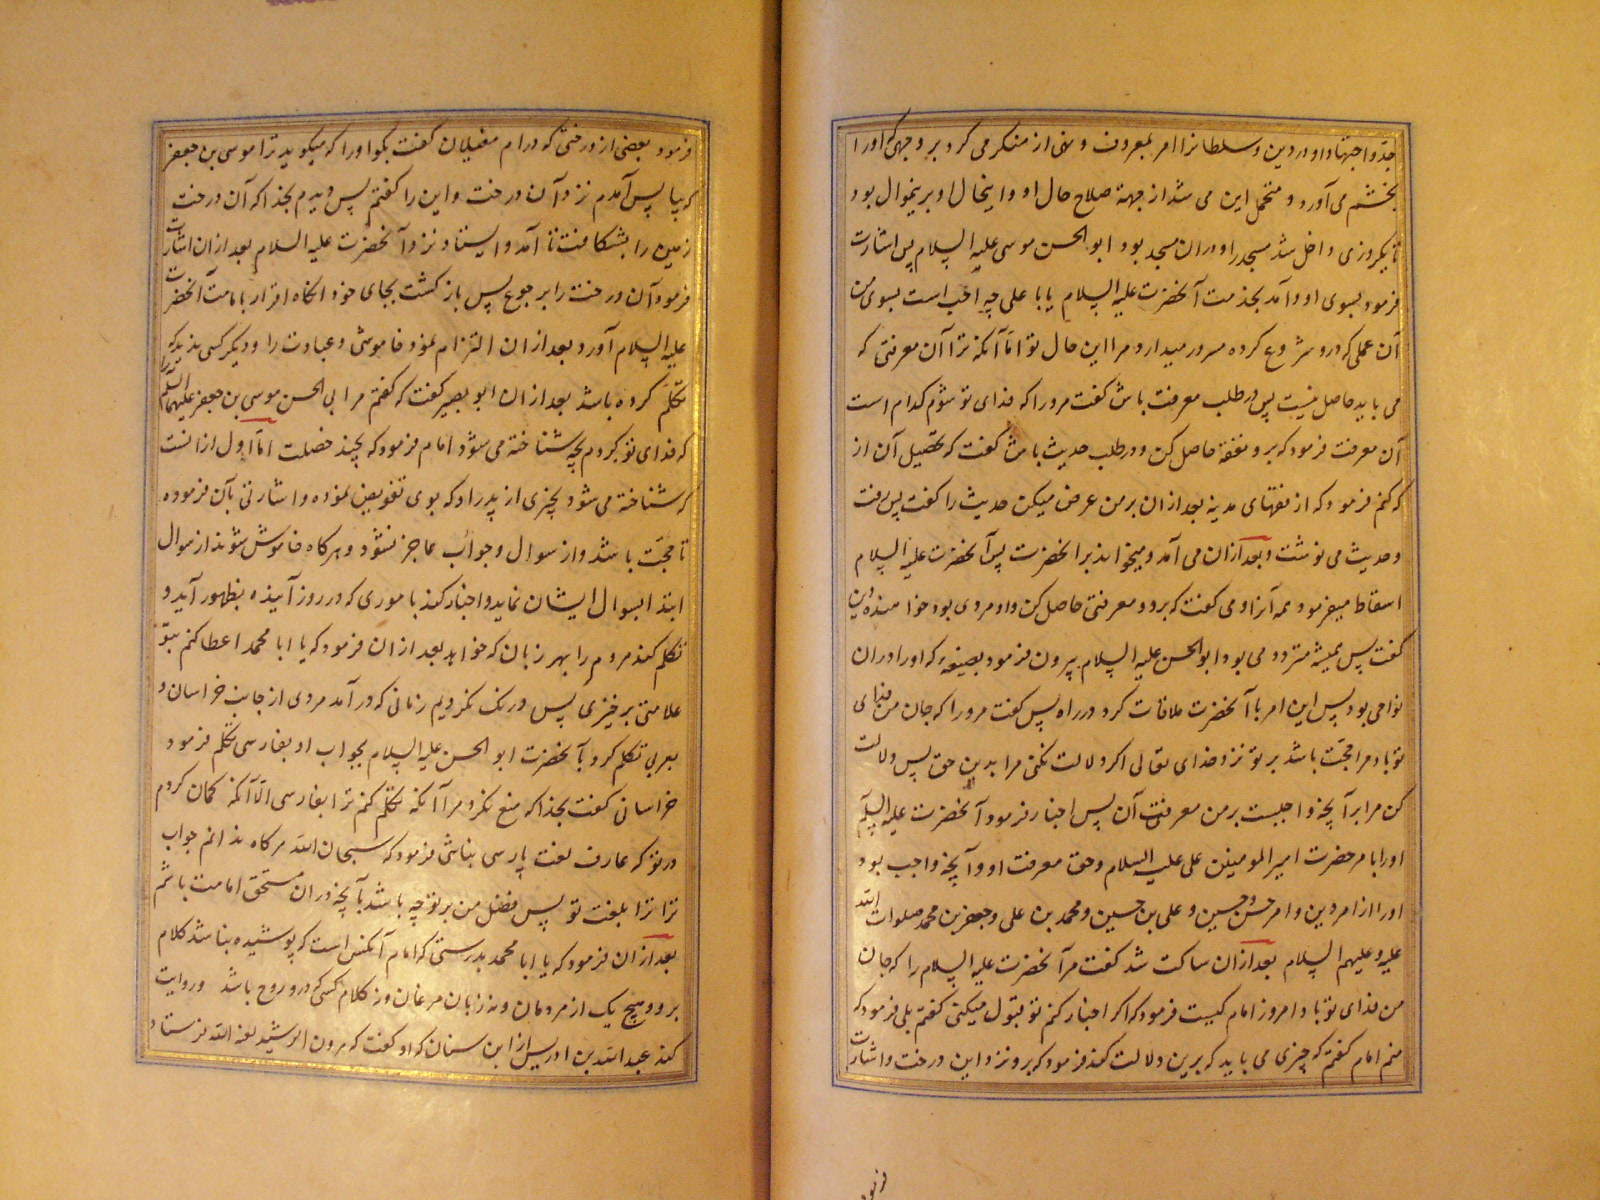 جدّ و اجتهاد او در دین و سلطانرا امر بمعروف و نهی از منکر می کرد بر وجهی که او را
بخشم می آورد و متحمل این می شد از جهة صلاح حال او و اینحال او برینموال بود
تا یکروزی داخل شد مسجد را و در ان مسجد بود ابو الحسن موسی علیه السلام پس اشارت
فرمود بسوی او و آمد بخدمت آنحضرت علیه السلام یابا علی چه احب است بسوی من
آن عملی که درو شروع کرده مسرور میدارد مرا این حال تو امّا آنکه ترا آن معرفتی که
می باید حاصل نیست پس در طلب معرفت باش گفت مرورا که فدای تو شوم کدام است
آن معرفت فرمود که برو تفقه حاصل کن و در طلب حدیث باش گفت که تحصیل آن از
که کنم فرمود که از فقهای مدینه بعد از ان بر من عرض میکن حدیث را گفت پس رفت
و حدیث می نوشت و بعد از ان می آمد و میخواند بر انحضرت پس آنحضرت علیه السلام
اسقاط میفرمود همه آنرا و می گفت که برو و معرفتی حاصل کن و او مردی بود خواهنده دین
گفت پس همیشه متردد می بود ابو الحسن علیه السلام بیرون فرمود بضیعه که او را در ان
نواحی بود پس این امر با آنحضرت ملاقات کرد در راه پس گفت مرورا که جان من فدای
تو باد مرا حجّت باشد بر تو نزد خدای تعالی اگر دلالت نکنی مرا بدین حق پس دلالت
کن مرا بر آنچه واجبست بر من معرفت آن پس اخبار فرمود آنحضرت علیه السلام
او را بامر حضرت امیر المومنین علی علیه السلام و حق معرفت او و آنچه واجب بود
او را از امر دین و امر حسن و حسین و علی بن حسین و محمد بن علی و جعفر بن محمد صلوات الله
علیه و علیهم السلام بعد از ان ساکت شد گفت مر آنحضرت علیه السلام را که جان
من فدای تو باد امروز امام کیست فرمود که اگر اخبار کنم تو قبول میکنی گفتم بلی فرمود که
منم امام گفتم که چیزی می باید که برین دلالت کند فرمود که برو نزد این درخت و اشارت
فرمود
فرمود بعضی از درختی که در ام مغیلان گفت بگو اورا که میگوید ترا موسی بن جعفر
که بیا پس آمدم نزد آن درخت و این را گفتم پس دیدم بخدا که آن درخت
زمین را بشکافت تا آمد و ایستاد نزد آنحضرت علیه السلام بعد از ان اشارت
فرمود آن درخت را برجوع پس باز گشت بجای خود انگاه اقرار بامامت آنحضرت
علیه السلام آورد بعد از ان التزام نمود خاموشی و عبادت را و دیگر کسی ندید که
تکلم کرده باشد بعد از ان ابو بصیر گفت که گفتم مر ابی الحسن موسی بن جعفر علیهما السلام را
که فدای تو گردم بچه شناخته می شود امام فرمود که بچند خصلت امّا اول از انست
که شناخته می شود بچیزی از پدر او که بوی تفویض نموده و اشارتی بآن فرموده
تا حجّت باشد و از سوال و جواب عاجز نشود و هرگاه خاموش شوند از سوال
ابتدا بسوال ایشان نماید و اخبار کند باموری که در روز آینده بظهور آید و
تکلم کند مردم را بهر زبان که خواهد بعد از ان فرمود که یا ابا محمد اعطا کنم بتو
علامتی برخیزی پس درنگ نکردیم زمانی که در آمد مردی از جانب خراسان و
بعربی تکلم کرد بآنحضرت ابو الحسن علیه السلام بجواب او بفارسی تکلم فرمود
خراسانی گفت بخدا که منع نکرد مرا آنکه تکلم کنم ترا بفارسی الّا آنکه گمان کردم
در تو که عارف لغت پارسی نباشی فرمود که سبحان الله هرگاه ندانم جواب
ترا بلغت تو پس فضل من بر تو چه باشد بآنچه در ان مستحق امامت باشم
بعد از ان فرمود که یا ابا محمد بدرستی که امام آنکس است که پوشیده نباشد کلام
برو و هیچ یک از مردمان و نه زبان مرغان و نه کلام کسی که درو روح باشد و روایت
کند عبد الله بن ادریس از ابن سنان که او گفت که هرون الرشید لعنه الله فرستاد